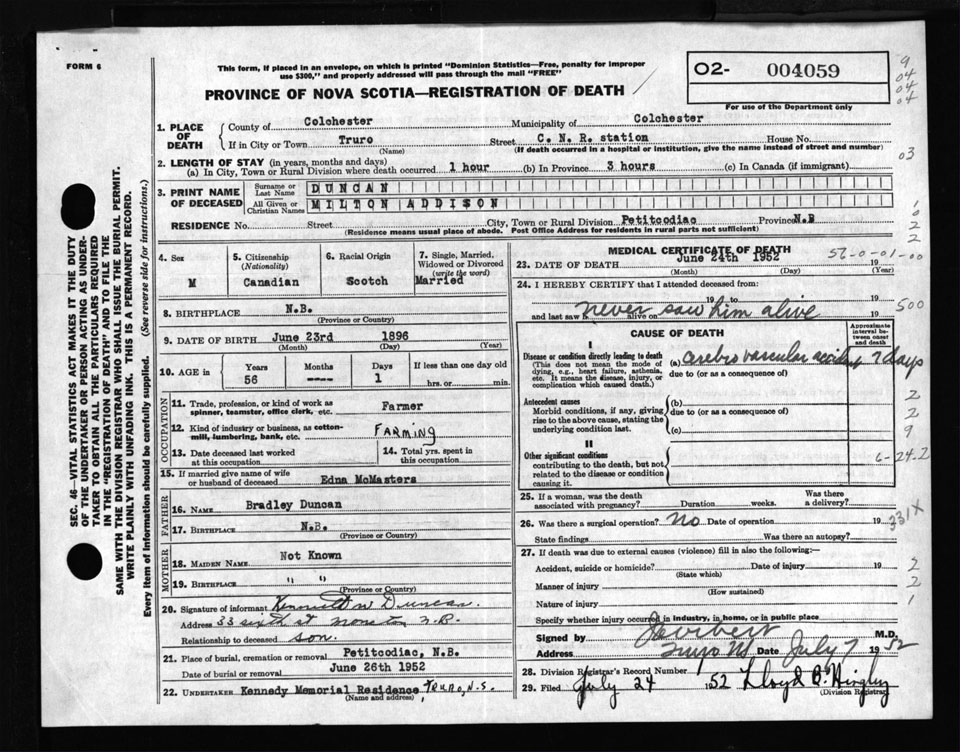 FORM 6
This form, if placed in an envelope, on which is printed "Dominion Statistics—Free, penalty for improper
use $300," and properly addressed will pass through the mail "FREE"
O2- 004059
For use of the Department only
PROVINCE OF NOVA SCOTIA—REGISTRATION OF DEATH
9
04
04
04
03
1. PLACE OF DEATH
County of Colchester Municipality of Colchester
If in City or Town Truro (Name) Street C. N. R. station House No.
(If death occurred in a hospital or institution, give the name instead of street and number)
2. LENGTH OF STAY (in years, months and days)
(a) In City, Town or Rural Division where death occurred 1 hour (b) In Province 3 hours (c) In Canada (if immigrant)
3. PRINT NAME OF DECEASED
Surname or Last Name DUNCAN
All Given or Christian Names MILTON ADDISON
RESIDENCE No. Street City, Town or Rural Division Petitcodiac Province N.B
(Residence means usual place of abode. Post Office Address for residents in rural parts not sufficient)
SEC. 46—VITAL STATISTICS ACT MAKES IT THE DUTY
OF THE UNDERTAKER OR PERSON ACTING AS UNDER-
TAKER TO OBTAIN ALL THE PARTICULARS REQUIRED
IN THE "REGISTRATION OF DEATH" AND TO FILE THE
SAME WITH THE DIVISION REGISTRAR WHO SHALL ISSUE THE BURIAL PERMIT.
WRITE PLAINLY WITH UNFADING INK. THIS IS A PERMANENT RECORD.
Every item of information should be carefully supplied. (See reverse side for instructions.)
4. Sex
M
5. Citizenship (Nationality)
Canadian
6. Racial Origin
Scotch
7. Single, Married, Widowed or Divorced (write the word)
Married
8. BIRTHPLACE N.B.
(Province or Country)
9. DATE OF BIRTH June 23rd 1896
(Month) (Day) (Year)
10. AGE in Years Months Days If less than one day old
56 ---- 1 hrs. or min.
OCCUPATION
11. Trade, profession, or kind of work as
spinner, teamster, office clerk, etc. Farmer
12. Kind of industry or business, as cotton-
mill, lumbering, bank, etc. FARMING
13. Date deceased last worked
at this occupation
14. Total yrs. spent in
this occupation
15. If married give name of wife
or husband of deceased Edna McMasters
FATHER
16. NAME Bradley Duncan
17. BIRTHPLACE N.B.
(Province or Country)
MOTHER
18. MAIDEN NAME Not Known
19. BIRTHPLACE " "
(Province or Country)
20. Signature of informant Kenneth W Duncan.
Address 33 sixth st Moncton N.B.
Relationship to deceased son.
21. Place of burial, cremation or removal Petitcodiac, N.B.
Date of burial or removal June 26th 1952
22. UNDERTAKER Kennedy Memorial Residence TRURO, N.S.
(Name and address)
MEDICAL CERTIFICATE OF DEATH
23. DATE OF DEATH June 24th 1952 19
(Month) (Day) (Year)
56-0-01-00
24. I HEREBY CERTIFY that I attended deceased from:
19 to 19
and last saw alive on 19
never saw him alive
500
CAUSE OF DEATH
Approximate interval between onset and death
I
Disease or condition directly leading to death
(This does not mean the mode of
dying, e.g., heart failure, asthenia,
etc. It means the disease, injury, or
complication which caused death.)
(a) Cerebro vascular accident 7 days
due to (or as a consequence of)
Antecedent causes
Morbid conditions, if any, giving
rise to the above cause, stating the
underlying condition last.
(b)
due to (or as a consequence of)
(c)
II
Other significant conditions
contributing to the death, but not
related to the disease or condition
causing it.
2
2
9
6-24.2
25. If a woman, was the death
associated with pregnancy? Duration weeks. Was there a delivery?
26. Was there a surgical operation? no Date of operation 19
State findings Was there an autopsy?
331X
27. If death was due to external causes (violence) fill in also the following:
Accident, suicide or homicide? Date of injury 19
(State which)
Manner of injury
(How sustained)
Nature of injury
Specify whether injury occurred in industry, in home, or in public place
2
2
1
Signed by M.D.
Address Truro NS Date July 7 1952
28. Division Registrar's Record Number
29. Filed July 24 1952 Lloyd
(Division Registrar)